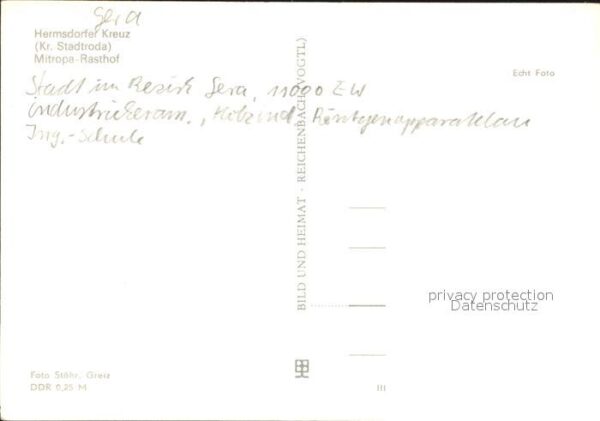 Gera
Hermsdorfer Kreuz
(Kr. Stadtroda)
Mitropa-Rasthof
Echt Foto
Stadt im Bezirk Gera, 11000 EW
Industriekeram., Holzind., Röntgenapparatebau
Ing.-Schule
BILD UND HEIMAT · REICHENBACH (VOGTL)
privacy protection
Datenschutz
Foto Stöhr, Greiz
DDR 0,25 M
III